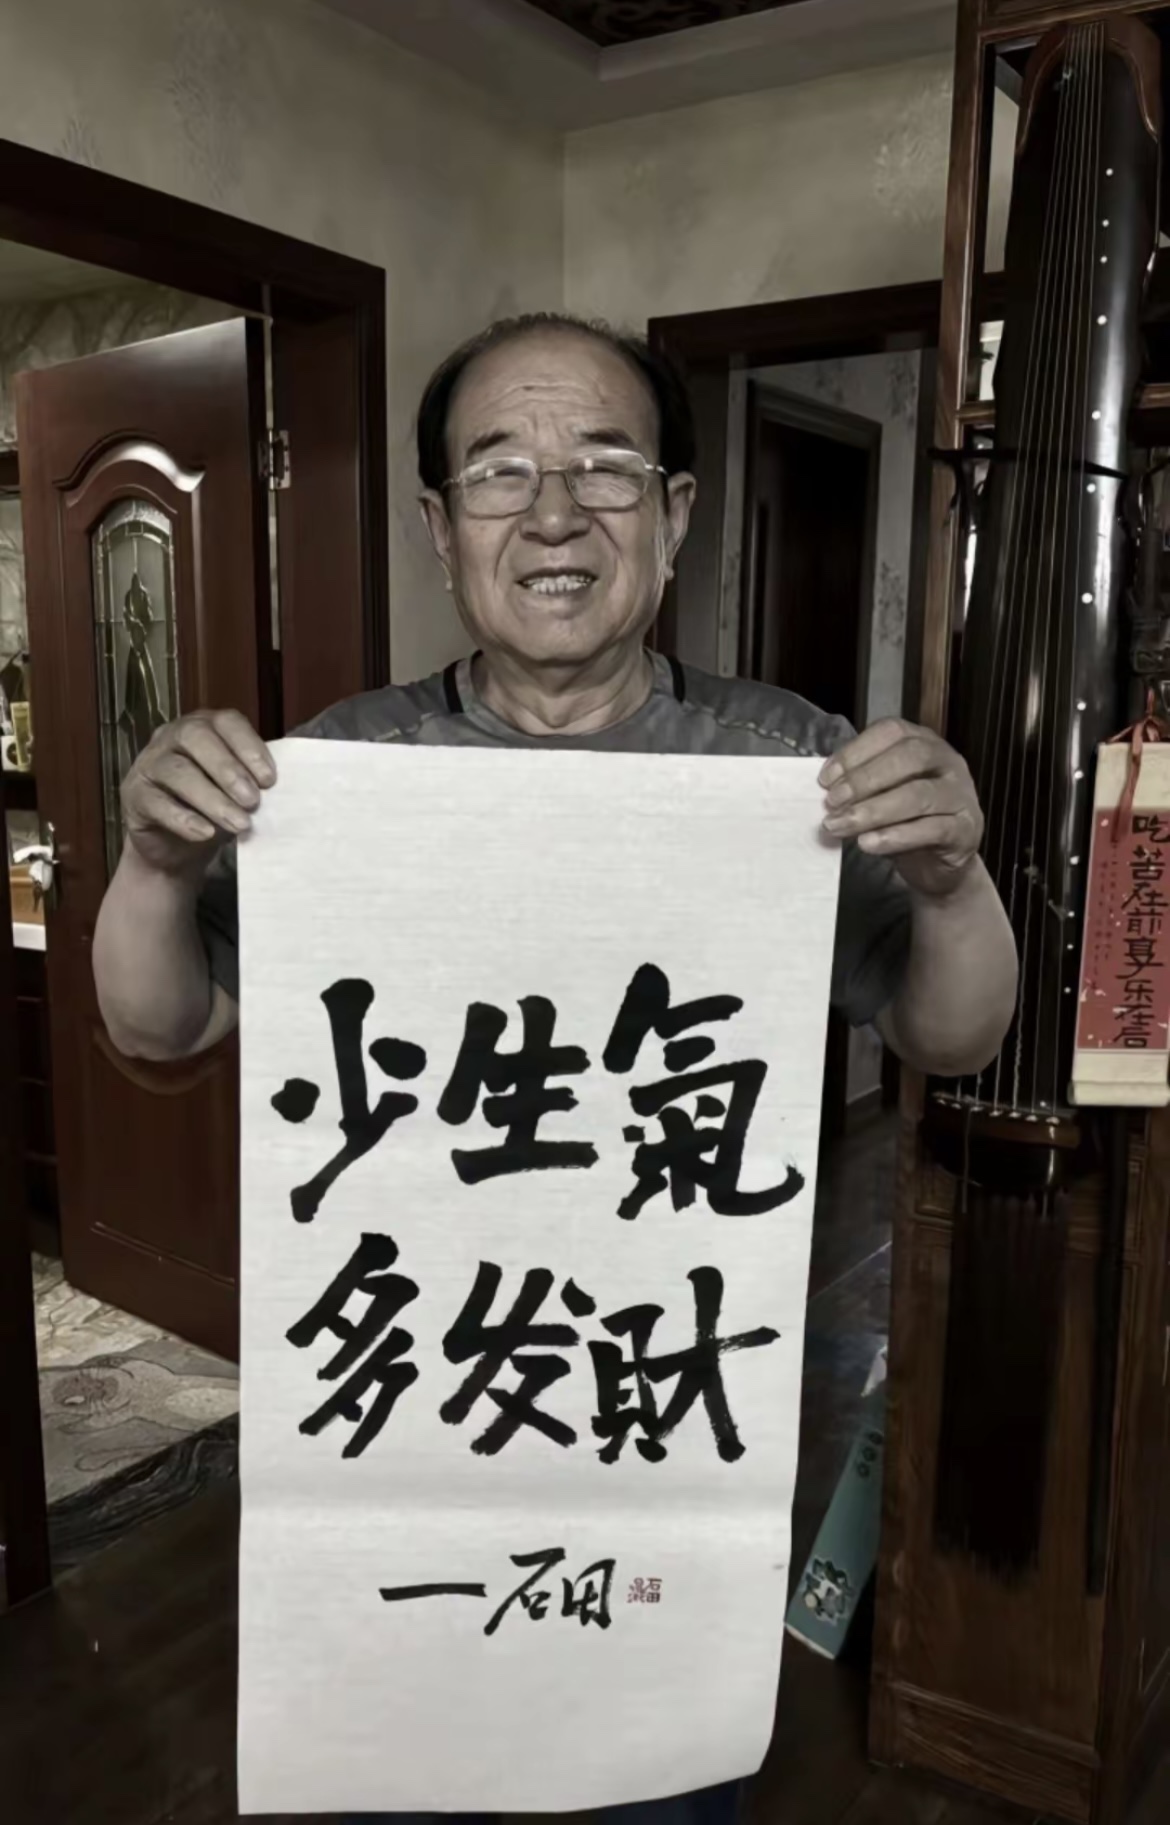 少生氣
多发財
一石田
吃苦在前享乐在后